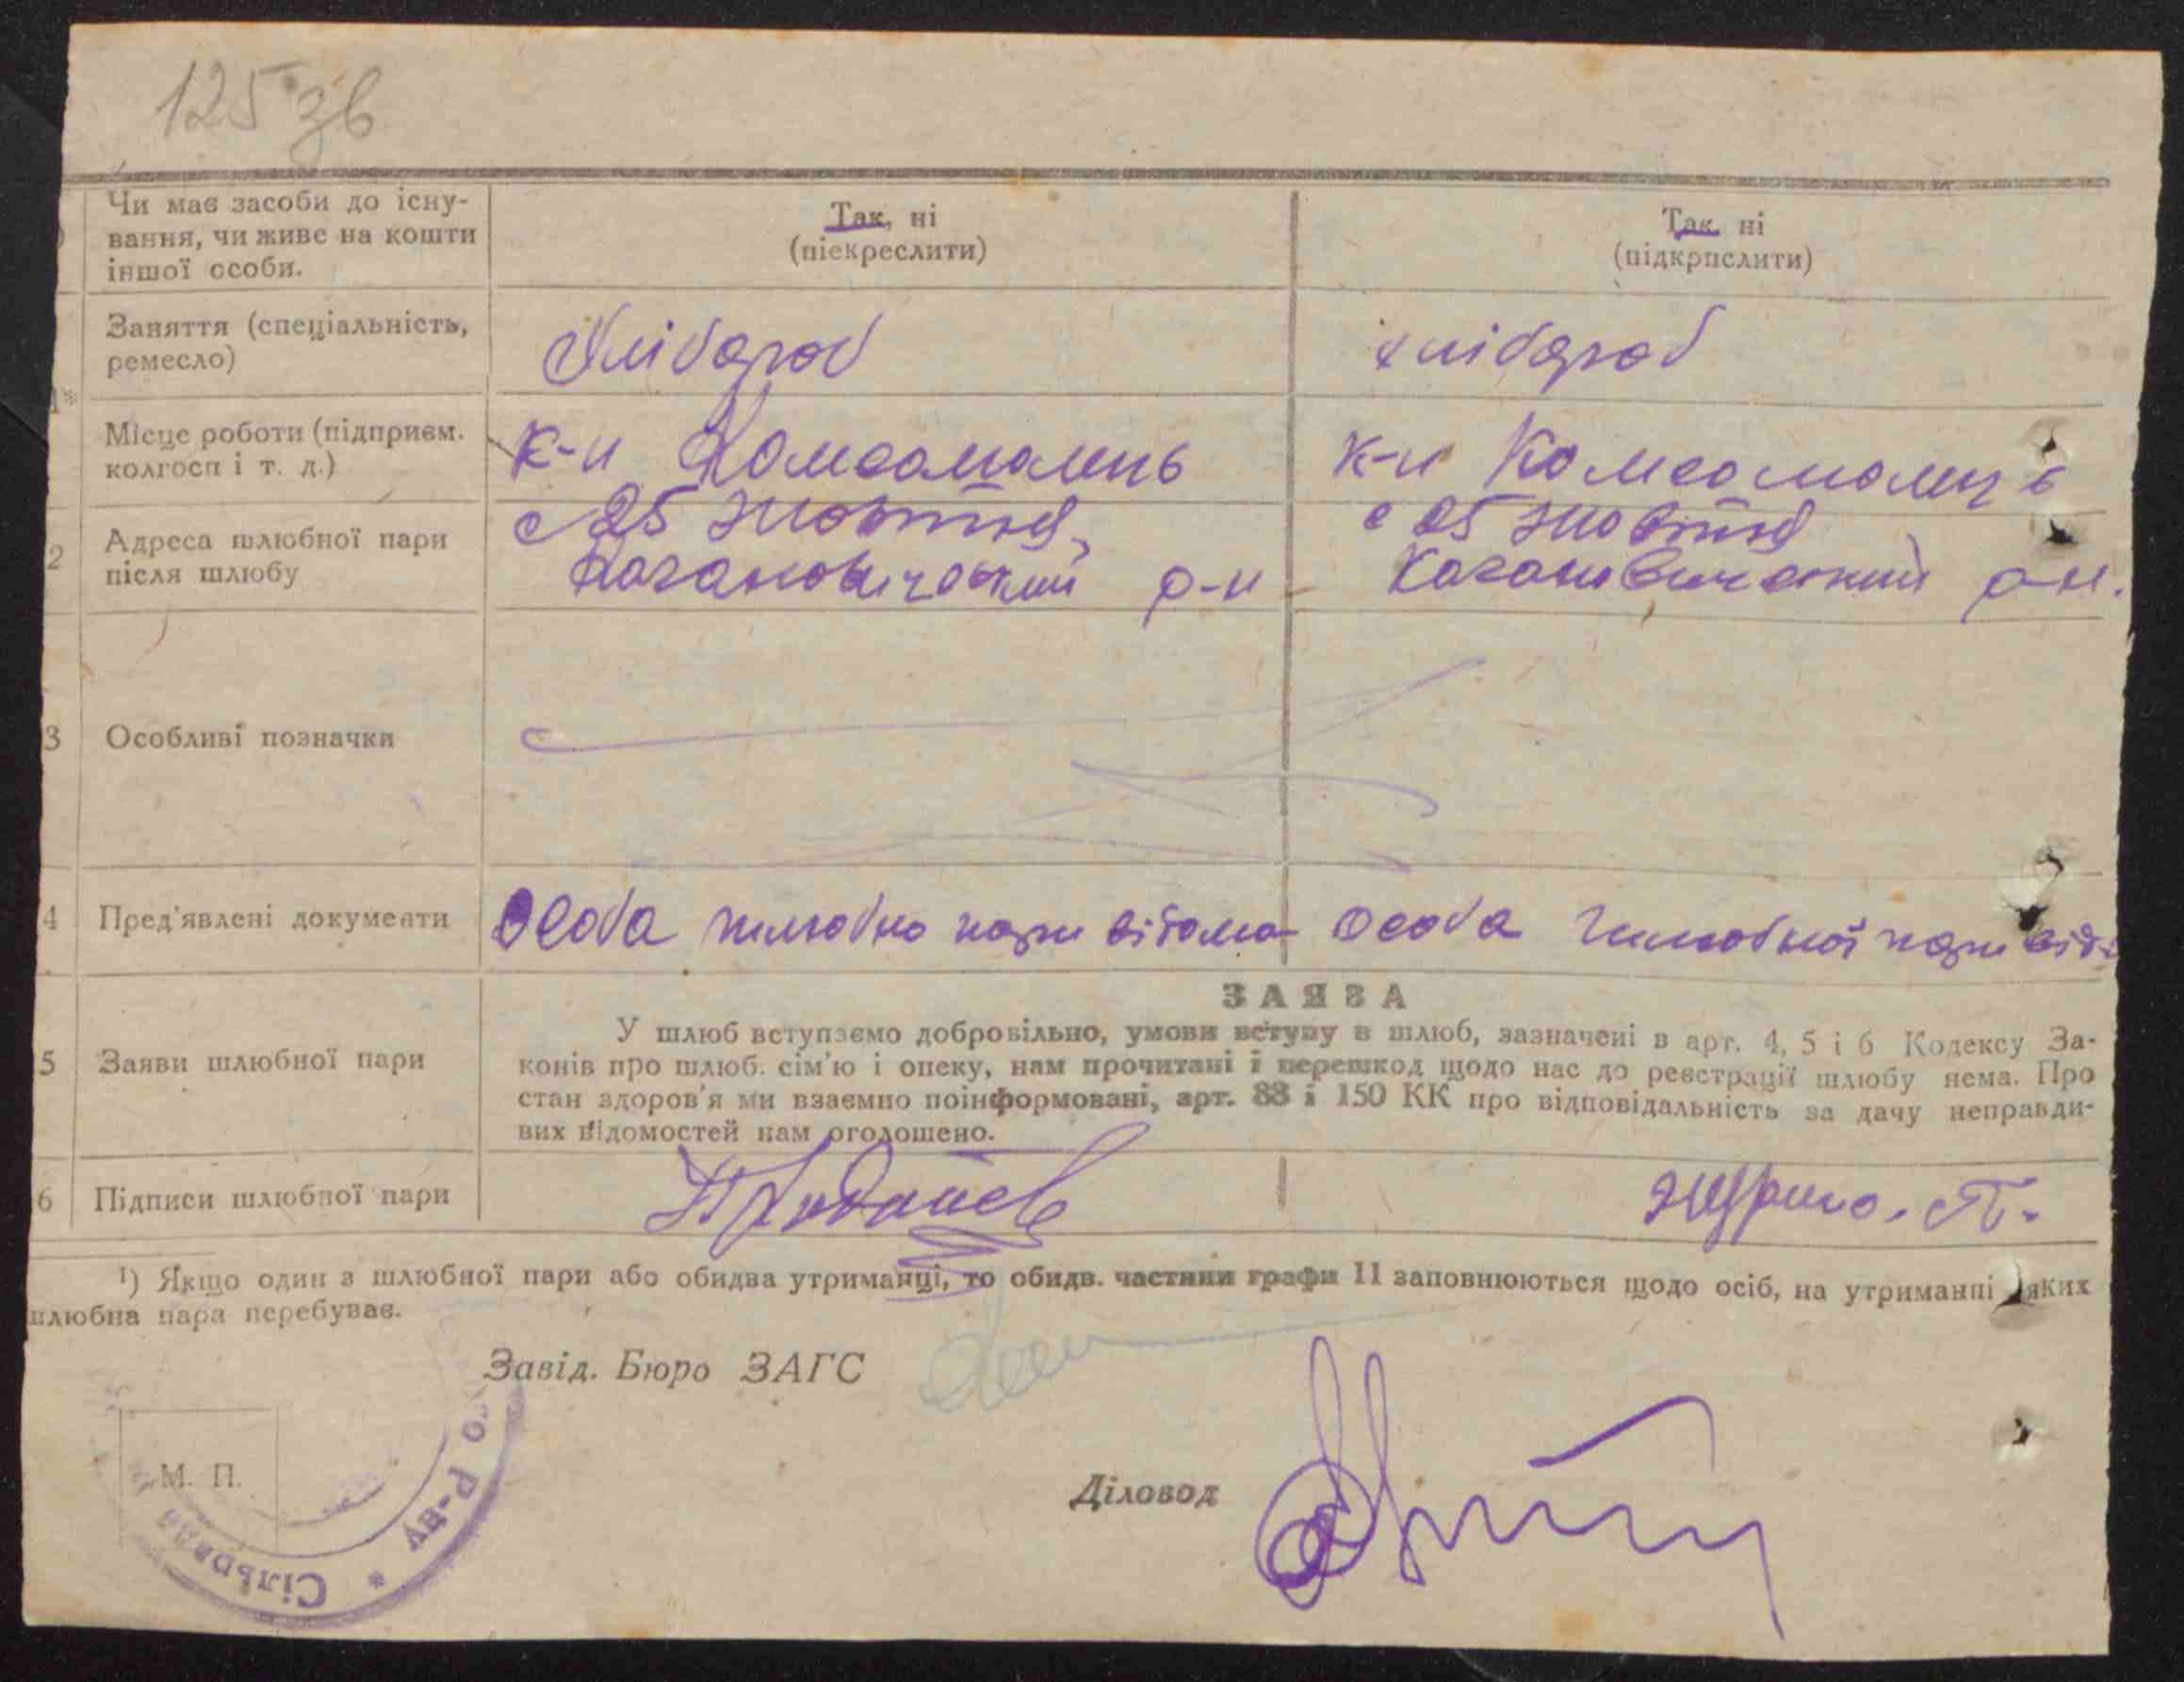 125 зв
Чи має засоби до існу-
вання, чи живе на кошти
іншої особи.
Так, ні
(піекреслити)
Так, ні
(підкрпслити)
Заняття (спеціальність,
ремесло)
Хлібороб
хлібороб
Місце роботи (підприєм.
колгосп і т. д.)
К-п Комсомолець
К-п Комсомолець
2
Адреса шлюбної пари
після шлюбу
с 25 жовтня,
Кагановичський р-н
с 25 жовтня
Кагановичський р-н.
3
Особливі позначки
4
Пред'явлені документи
Особа шлюбно пари відома
Особа шлюбної пари від
ЗАЯВА
5
Заяви шлюбної пари
У шлюб вступаємо добровільно, умови вступу в шлюб, зазначені в арт. 4, 5 і 6 Кодексу За-
конів про шлюб. сім'ю і опеку, нам прочитані і перешкод щодо нас до реєстрації шлюбу нема. Про
стан здоров'я ми взаємно поінформовані, арт. 88 і 150 КК про відповідальність за дачу неправди-
вих відомостей нам оголошено.
6
Підписи шлюбної пари
П.
¹) Якщо один з шлюбної пари або обидва утриманці, то обидв. частини графи 11 заповнюються щодо осіб, на утриманні яких
шлюбна пара перебуває.
Завід. Бюро ЗАГС
М. П.
Діловод
Сільрада * Р-ну